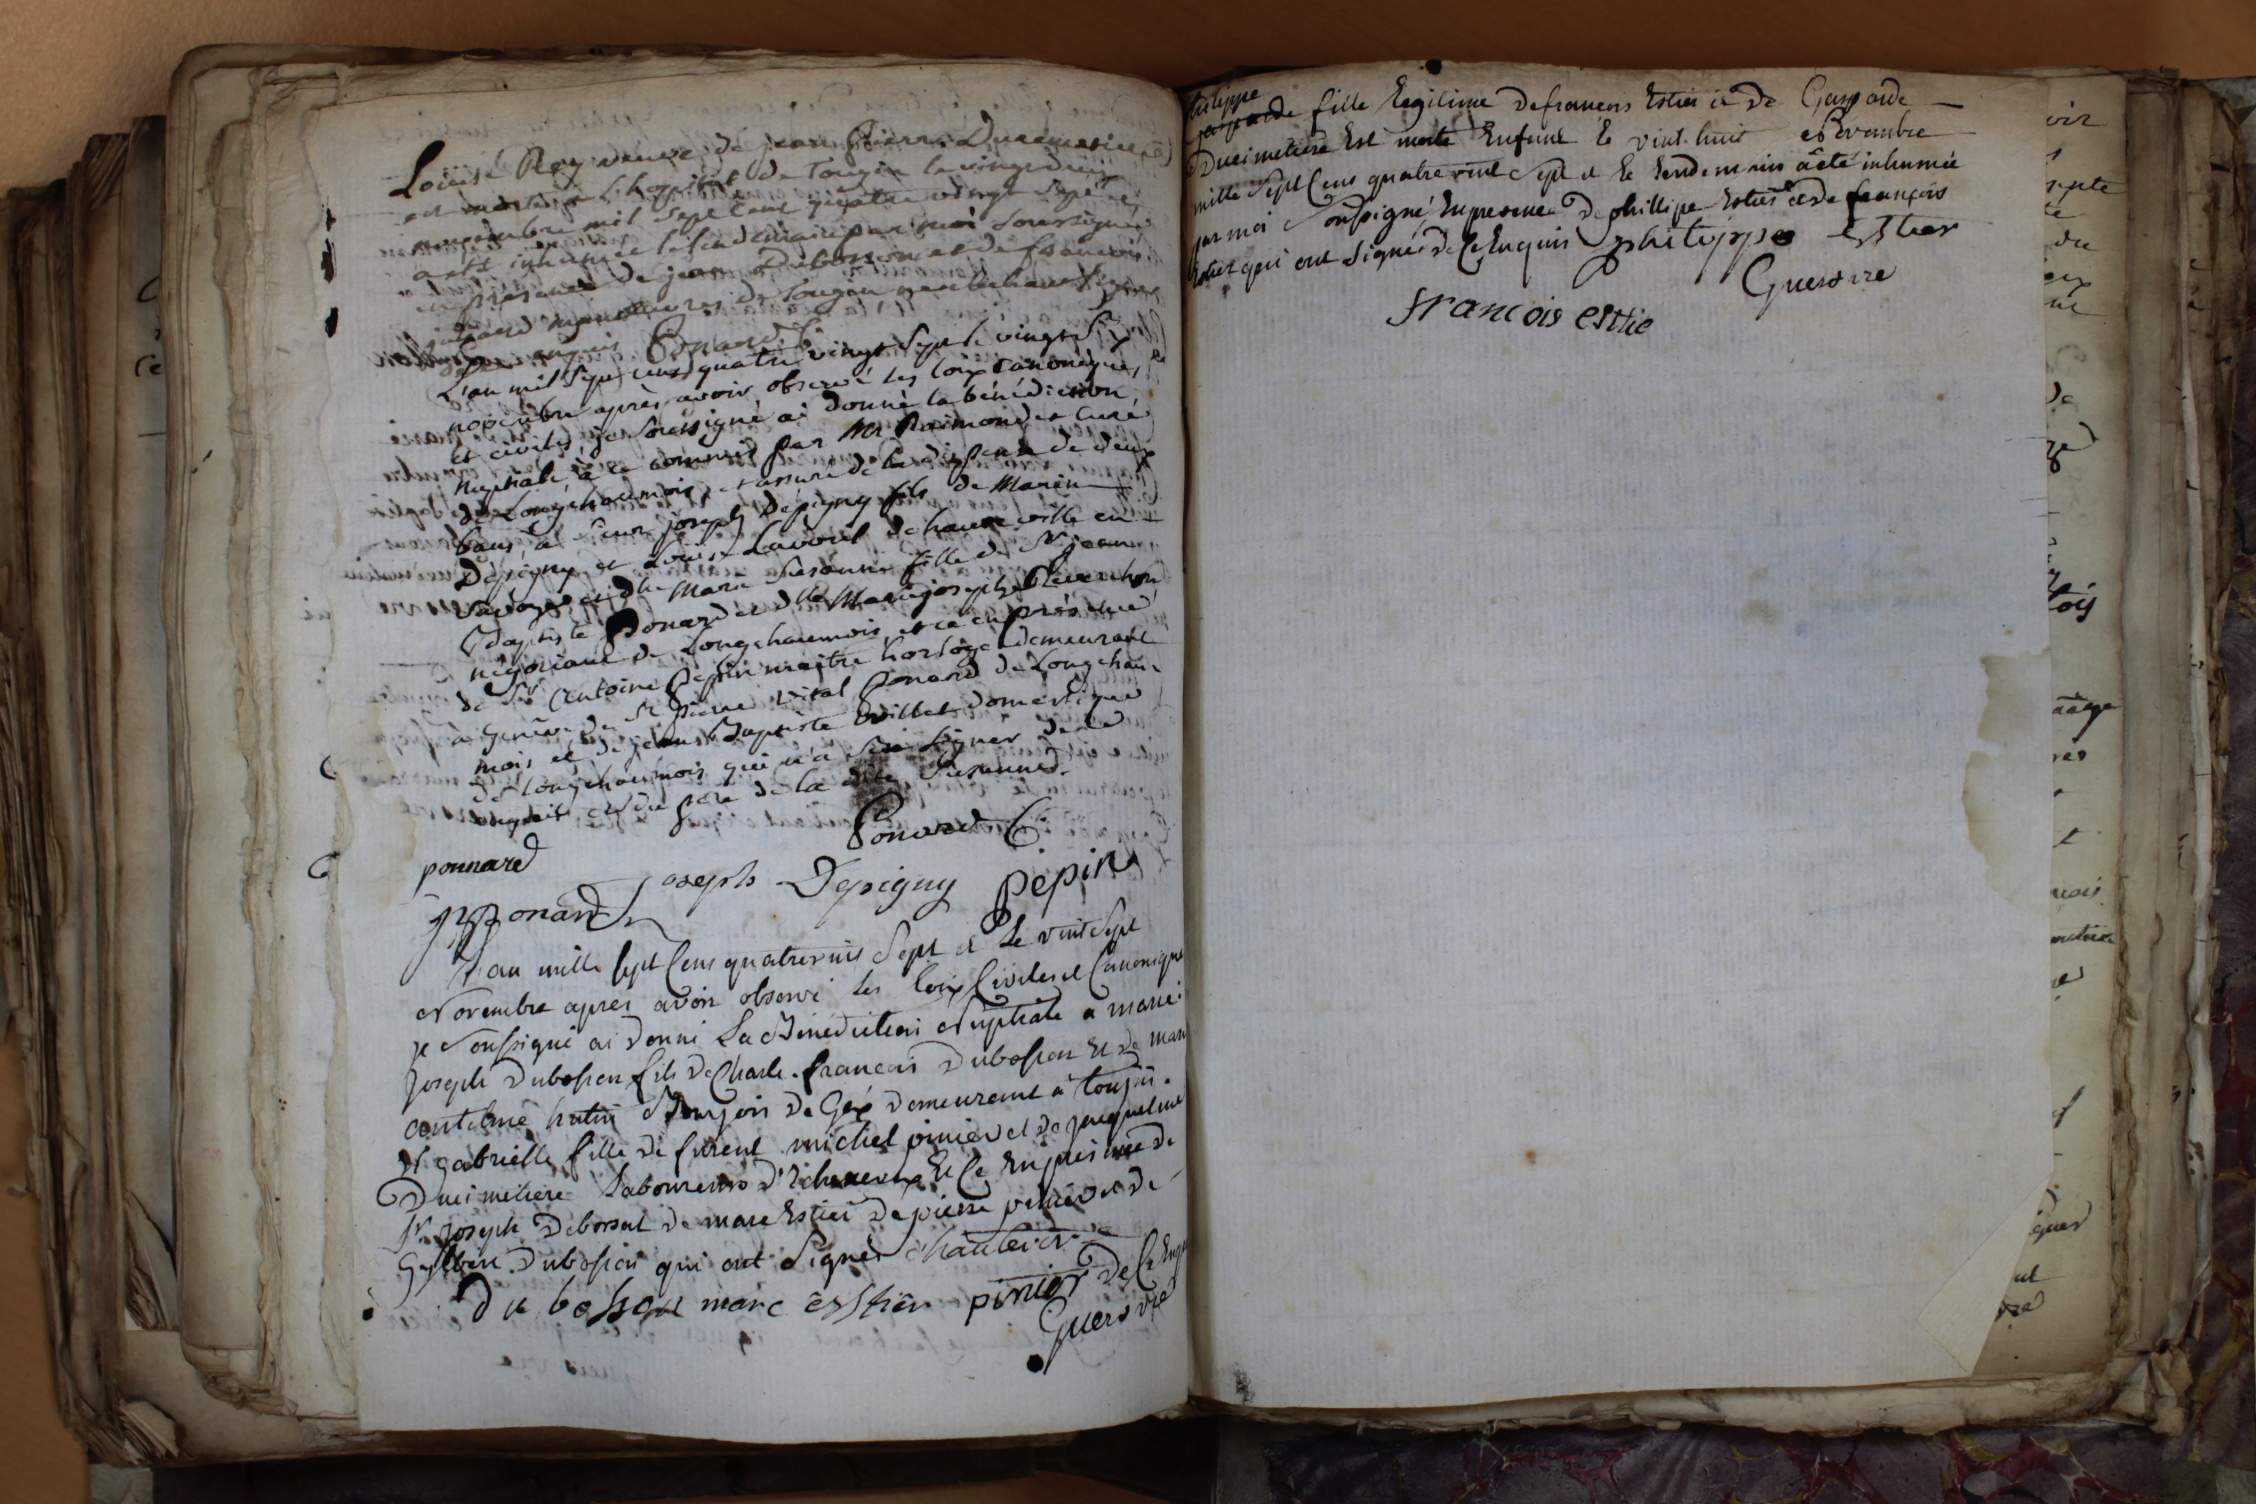 Louise Roy veuve de jean Pierre Ducimetiere
est morte a l'hopital de Tougin le vingt deux
novembre mil sept cent quatre vingt sept et
a été inhumée le lendemain par moi soussigné
en présence de jean Duborson et de francois
manoeuvres de Tougin
enquis Ponard
L'an mil sept cens quatre vingt sept le vingt six
novembre après avoir observé les loix canoniques
et civiles, je soussigné ai donné la bénédiction
nuptiale, à ce commis par Mr Raimond curé
de Longchaumois, et assuré de la dispense de deux
bans, à Sieur joseph Dépigny fils de Marin
Dépigny et Louise Lavorel de hauteville en
Savoye et dlle Marie Susanne fille de Sr jean
Baptiste Ponard et dlle Marie josephe Reverchon
négociant de Longchaumois, et ce en présence
de Sr Antoine Pepin maitre horloger demeurant
à Genève, de Sr Pierre vital Ponard de Longchau-
mois et de jean Baptiste Maillet domestique
de Longchaumois qui n'a sçu signer de ce
enquis et du père de la dite Susanne.
Ponard C.
ponnard
joseph Dépigny pepin
JB ponard
L'an mille sept Cens quatrevint Sept et Le vint Sept
Novembre apres avoir observé Les Loix Civiles et Canonique
je Soussigné ai donné La Bénédiction Nuptiale a marie
joseph Dubosson fils de Charle francois Dubosson Et de marie
antelme Bourjois de Gex demeurant à tougin
Et gabrielle fille de furent michel pinier et de jacqueline
Ducimetiere Laboureurs d'Echenevex Et Ce En présence de
Sr joseph Deborsat de marc Estier de pierre pinier et de
Dubosson qui ont Signés
du bosson marc esstier pinier de Ce Enquis
Guer
philippe
gasparde fille Legitime de francois Estier et de Gasparde
Ducimetiere Est morte Enfant le vint huit Novembre
mille Sept Cens quatrevint Sept et le Lendemain à été inhumée
par moi Soussigné En presence de phillipe Estier et de françois
Estier qui ont Signés de Ce Enquis philippe esstier
Guer
francois esttie